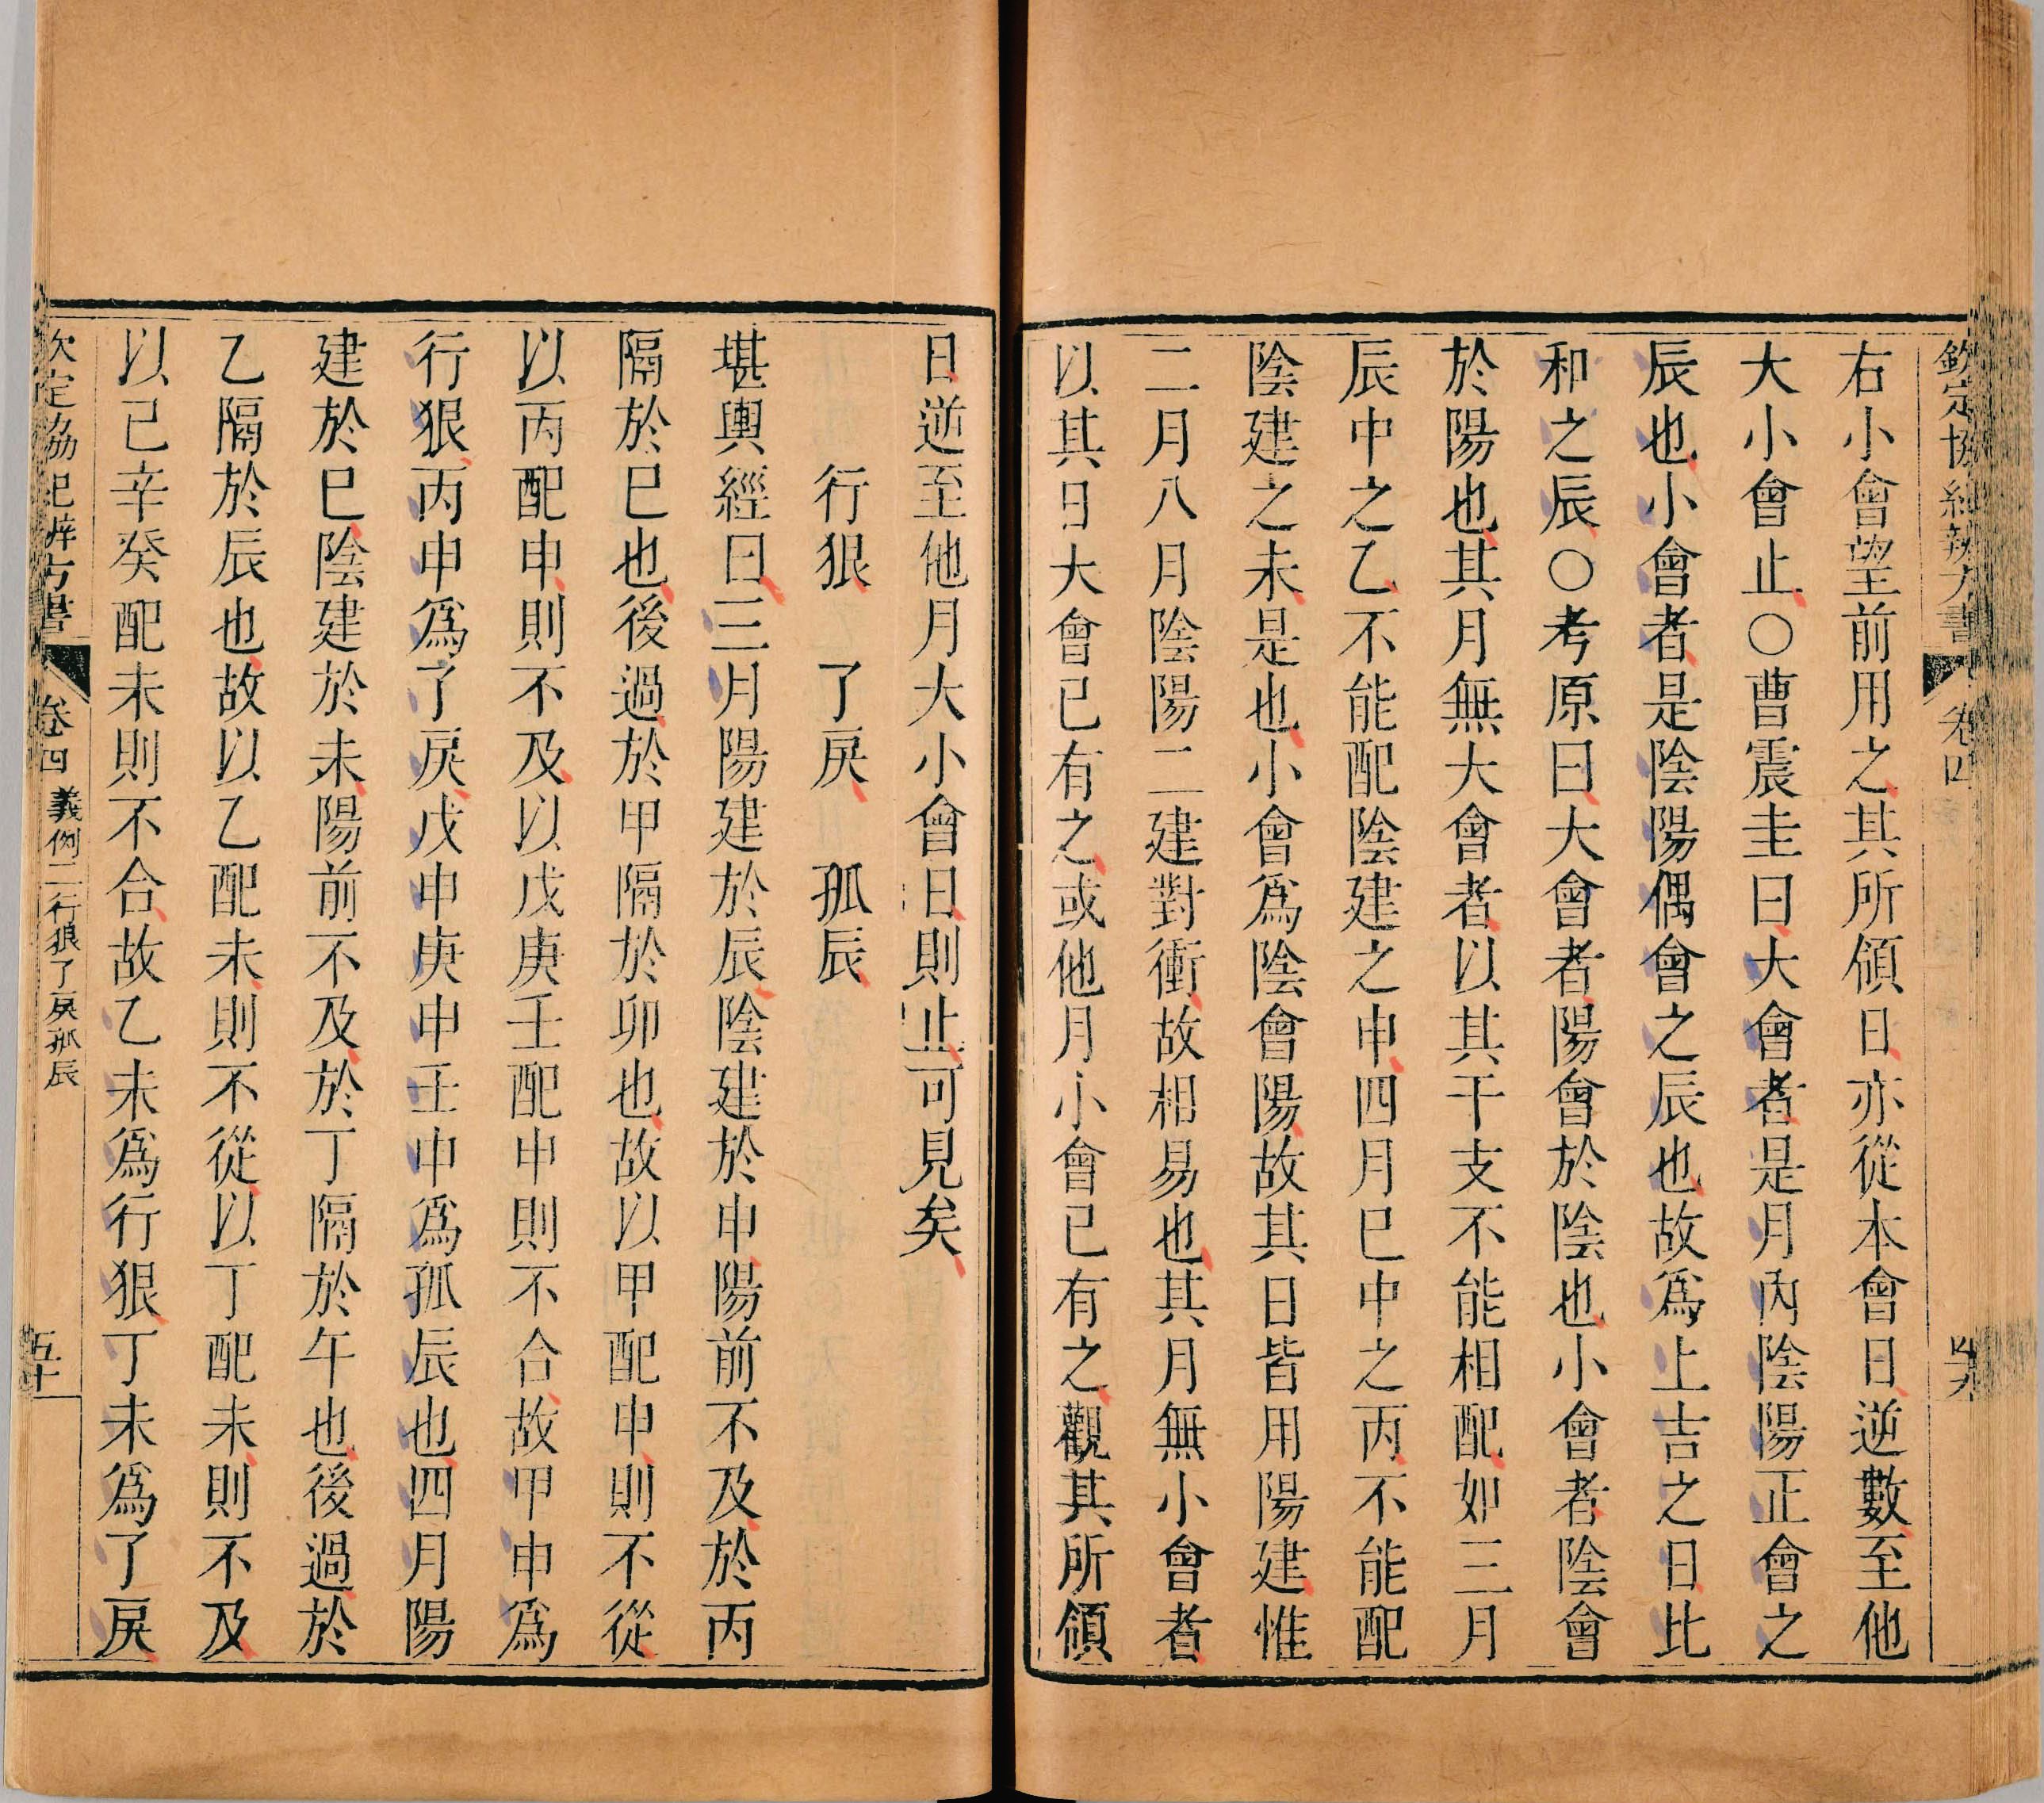 欽定協紀辨方書 卷四 四十九
右小會望前用之其所領日亦從本會日逆數至他
大小會止○曹震圭曰大會者是月內陰陽正會之
辰也小會者是陰陽偶會之辰也故爲上吉之日比
和之辰○考原曰大會者陽會於陰也小會者陰會
於陽也其月無大會者以其干支不能相配如三月
辰中之乙不能配陰建之申四月巳中之丙不能配
陰建之未是也小會爲陰會陽故其日皆用陽建惟
二月八月陰陽二建對衝故相易也其月無小會者
以其日大會已有之或他月小會已有之觀其所領
日逆至他月大小會日則止可見矣
行狠 了戾 孤辰
堪輿經曰三月陽建於辰陰建於申陽前不及於丙
隔於巳也後過於甲隔於卯也故以甲配申則不從
以丙配申則不及以戊庚壬配申則不合故甲申爲
行狠丙申爲了戾戊申庚申壬申爲孤辰也四月陽
建於巳陰建於未陽前不及於丁隔於午也後過於
乙隔於辰也故以乙配未則不從以丁配未則不及
以己辛癸配未則不合故乙未爲行狠丁未爲了戾
欽定協紀辨方書 卷四 義例二行狠了戾孤辰 五十